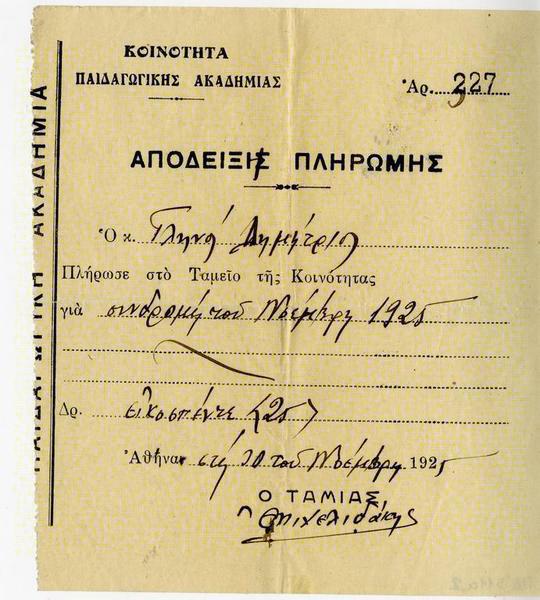 ΠΑΙΔΑΓΩΓΙΚΗ ΑΚΑΔΗΜΙΑ
ΚΟΙΝΟΤΗΤΑ
ΠΑΙΔΑΓΩΓΙΚΗΣ ΑΚΑΔΗΜΙΑΣ
Ἀρ. 227
ΑΠΟΔΕΙΞΙΣ ΠΛΗΡΩΜΗΣ
Ὁ κ. Γληνό Δημήτριο
Πλήρωσε στὸ Ταμεῖο τῆς Κοινότητας
γιὰ συνδρομή του Νοέμβρη 1925
Δρ. εἰκοσπέντε (25)
Ἀθήνα στὶς του Νοέμβρη 1925
Ο ΤΑΜΙΑΣ
Μιχελιδάκης